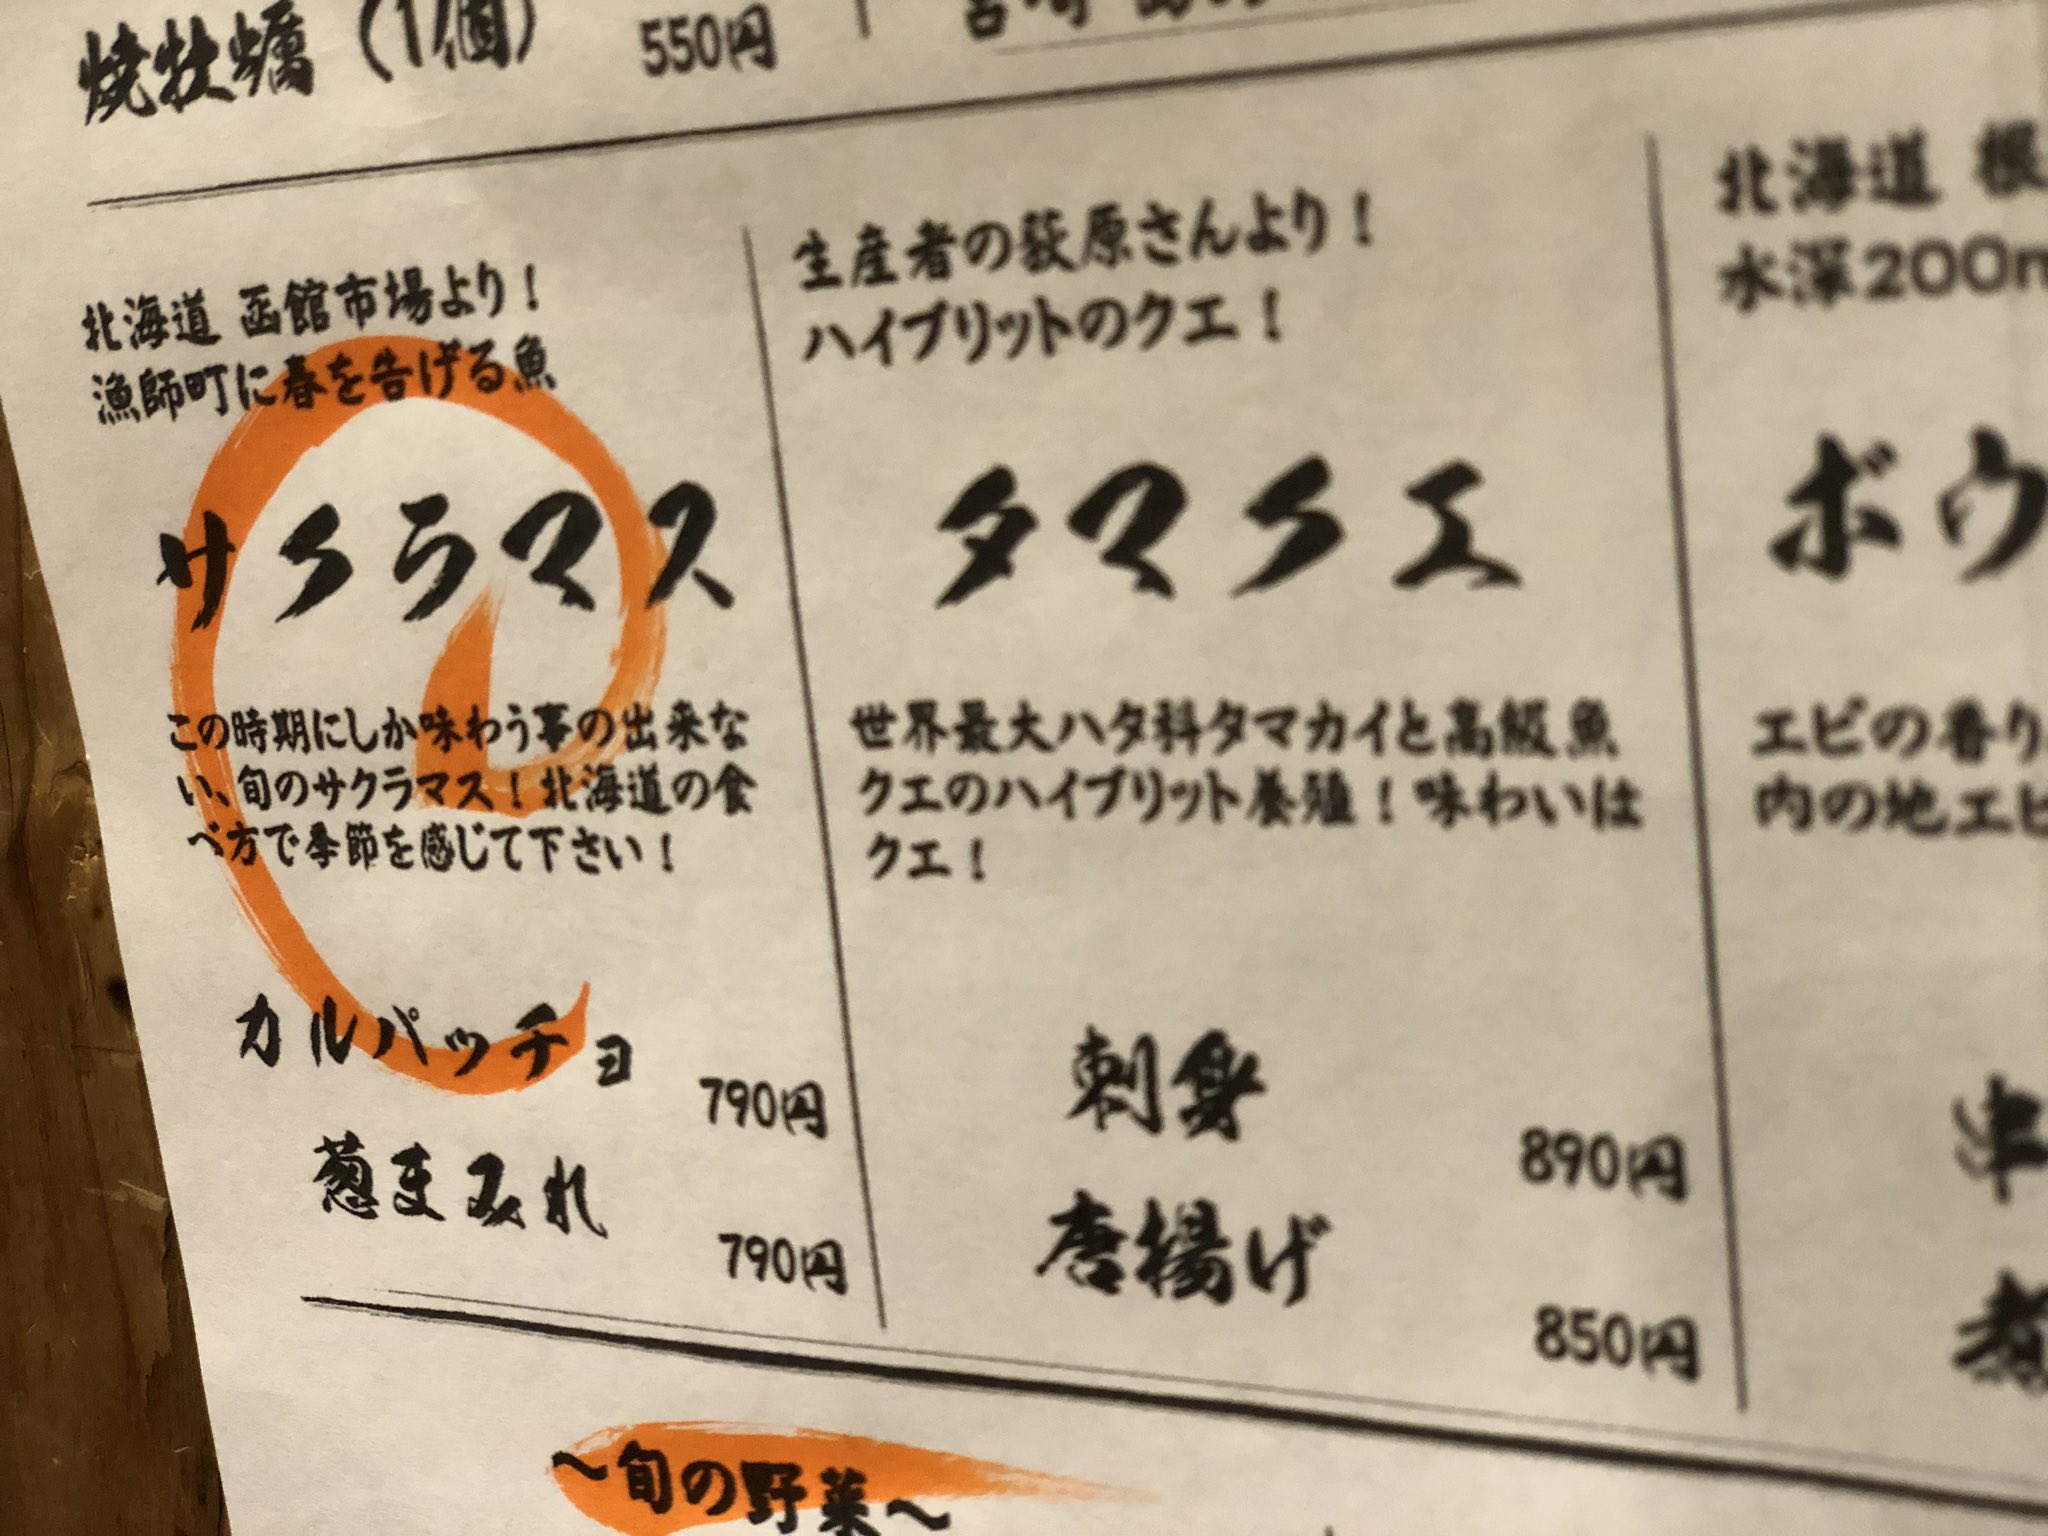 焼牡蠣(1個)
550円
北海道 函館市場より!
漁師町に春を告げる魚
サクラマス
この時期にしか味わう事の出来な
い、旬のサクラマス!北海道の食
べ方で季節を感じて下さい!
カルパッチョ
790円
葱まみれ
790円
生産者の荻原さんより!
ハイブリットのクエ!
タマクエ
世界最大ハタ科タマカイと高級魚
クエのハイブリット養殖!味わいは
クエ!
刺身
890円
唐揚げ
850円
北海道 根
水深200m
ボウ
エビの香り
内の地エビ
串
煮
~旬の野菜~